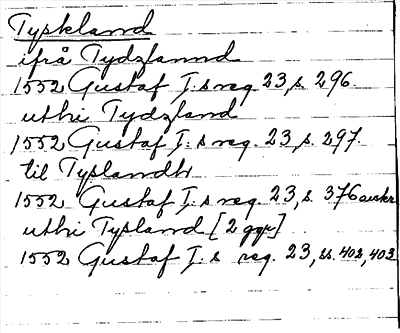 Tyskland
ifrå Tydzlannd
1552 Gustaf I:s reg. 23, s. 296.
uthi Tydzland
1552 Gustaf I:s reg. 23, s. 297.
til Tyslandh
1552 Gustaf I:s reg. 23, s. 376 avskr
uthi Tysland [2 ggr]
1552 Gustaf I:s reg. 23, ss. 402, 403